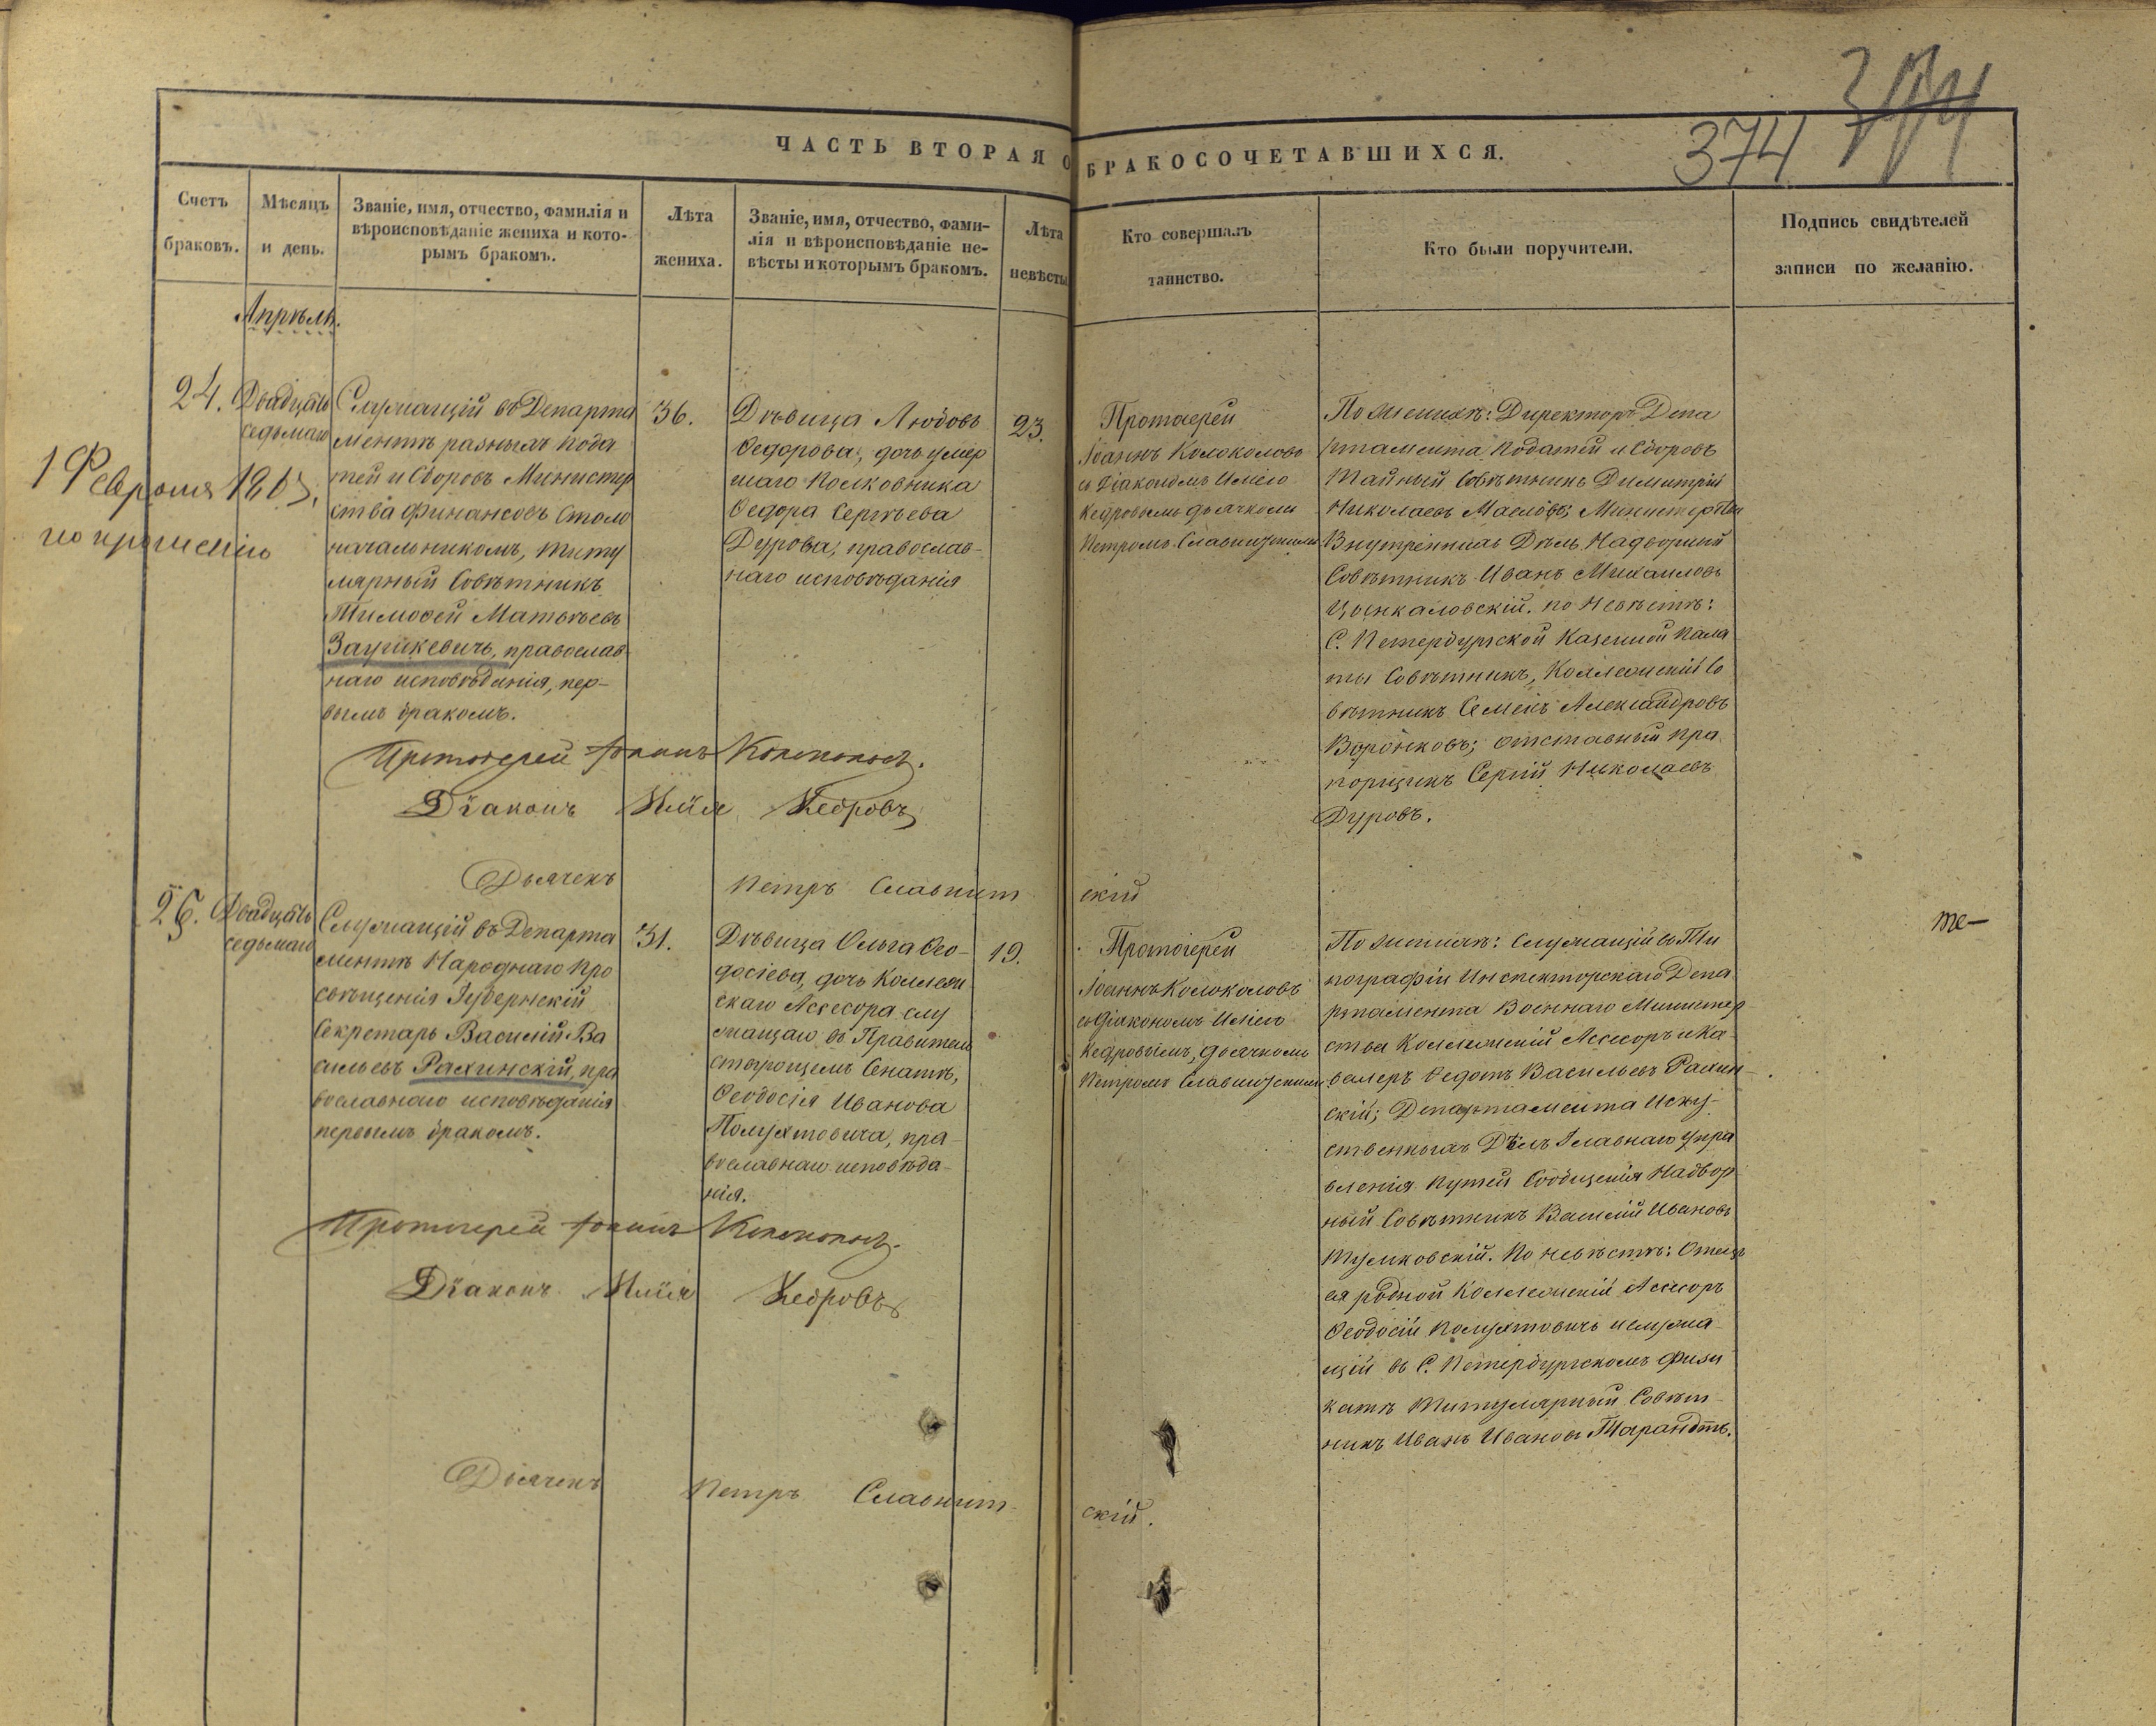 374
ЧАСТЬ ВТОРАЯ О БРАКОСОЧЕТАВШИХСЯ.
Счетъ
браковъ.
Мѣсяцъ
и день.
Званіе, имя, отчество, фамилія и
вѣроисповѣданіе жениха и кото-
рымъ бракомъ.
Лѣта
жениха.
Званіе, имя, отчество, фами-
лія и вѣроисповѣданіе не-
вѣсты и которымъ бракомъ.
Лѣта
невѣсты
Кто совершалъ
таинство.
Кто были поручители.
Подпись свидѣтелей
записи по желанію.
Апрѣль.
1 Февраля
по прошенію
24.
Двадцать
седьмаго
Служащій въ Департа
ментѣ разныхъ пода
тей и Сборовъ Министер
ства Финансовъ Столо
начальникомъ, Титу
лярный Совѣтникъ
Тимоѳей Матвѣевъ
Заушкевичъ, православ
наго исповѣданія, пер-
вымъ бракомъ.
36.
Дѣвица Любовь
Ѳедорова, дочь умер
шаго Полковника
Ѳедора Сергѣева
Дурова, православ-
наго исповѣданія
23.
Протоіерей
Іоаннъ Колоколовъ
съ Діакономъ Иліею
Кедровымъ дьячкомъ
Петромъ Славнитскимъ
По женихѣ: Директоръ Депа
ртамента Податей и Сборовъ
Тайный Совѣтникъ Димитрій
Николаевъ Масловъ; Министерства
Внутреннихъ Дѣлъ Надворный
Совѣтникъ Иванъ Михаиловъ
Цвенкаловскій. по невѣстѣ:
С. Петербургской Казенной Пала
ты Совѣтникъ, Коллежскій Со
вѣтникъ Семенъ Александровъ
Воронковъ; отставный пра
порщикъ Сергій Николаевъ
Дуровъ.
Протоіерей Іоаннъ Колоколовъ.
Діаконъ Илія Кедровъ
Дьячекъ Петръ Славнит
скій
25.
Двадцать
седьмаго
Служащій въ Департа
ментѣ Народнаго Про
свѣщенія Губернскій
Секретарь Василій Ва
сильевъ Рахинскій, пра
вославнаго исповѣданія
первымъ бракомъ.
31.
Дѣвица Ольга Ѳео-
досіева, дочь Коллеж
скаго Ассесора слу
жащаго въ Правитель
ствующемъ Сенатѣ,
Ѳеодосія Иванова
Полухтовича, пра-
вославнаго исповѣда-
нія.
19.
Протоіерей
Іоаннъ Колоколовъ
съ Діакономъ Иліею
Кедровымъ, дьячкомъ
Петромъ Славнитскимъ
По женихѣ: Служащій въ Ти
пографіи Инспекторскаго Депа
ртамента Военнаго Министер
ства Коллежскій Ассесоръ и Ка-
валеръ Ѳедотъ Васильевъ Рахин-
скій; Департамента Иску-
ственныхъ Дѣлъ Главнаго Упра
вленія Путей Сообщенія Надвор
ный Совѣтникъ Василій Ивановъ
Тумковскій. По невѣстѣ: Отецъ
ея родной Коллежскій Ассесоръ
Ѳеодосій Полухтовичъ и служа-
щій въ С. Петербургскомъ Физи
катѣ Титулярный Совѣт-
никъ Иванъ Ивановъ Тарандтъ.
те—
Протоіерей Іоаннъ Колоколовъ.
Діаконъ Илія Кедровъ
Дьячекъ Петръ Славнит-
скій.